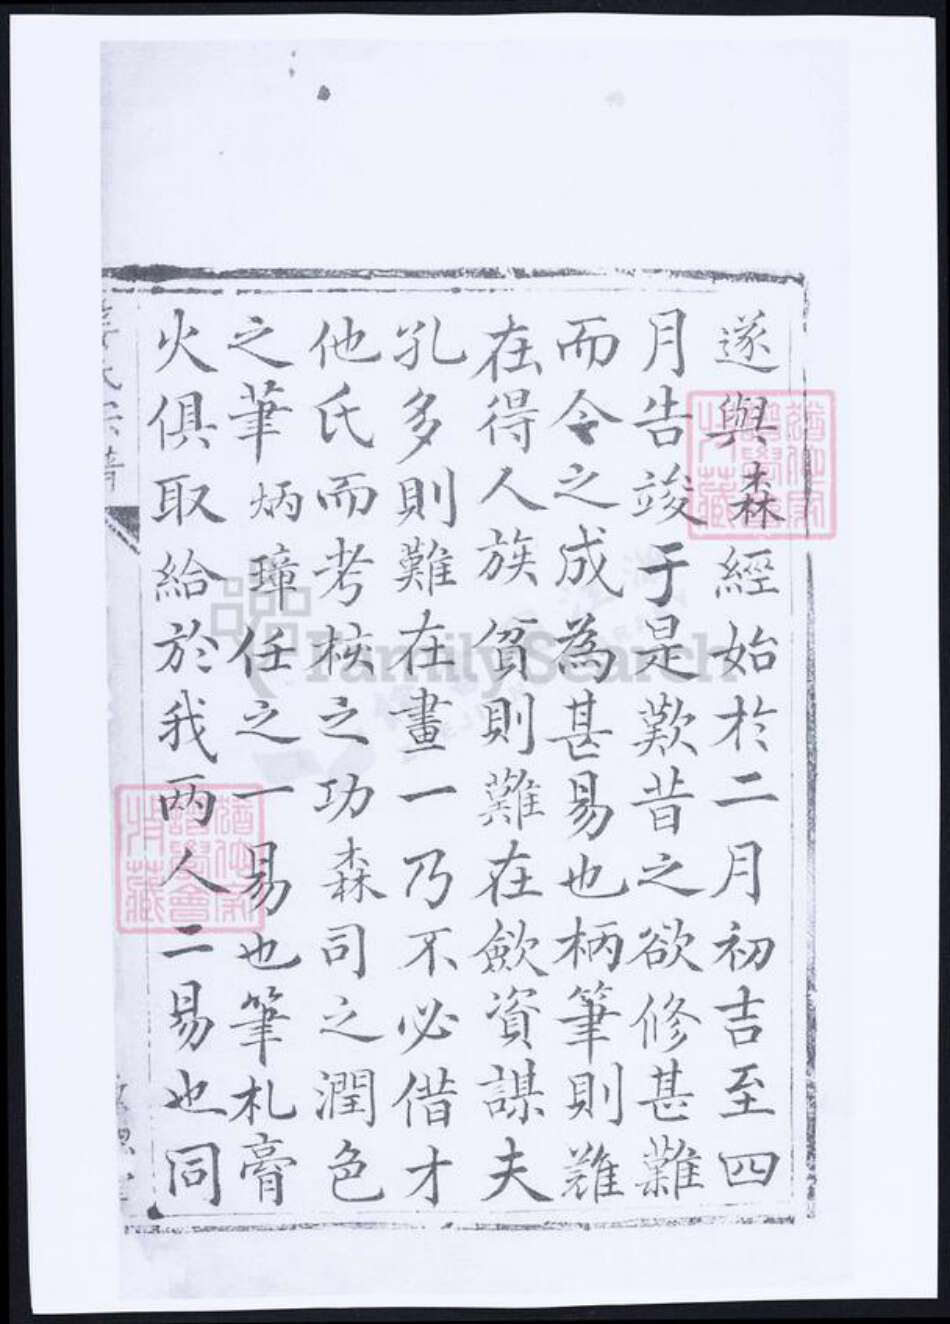 遂與森經始於二月初吉至四
月告竣于是歎昔之欲修甚難
而今之成為甚易也柄筆則難
在得人族貧則難在斂資謀夫
孔多則難在畫一乃不必借才
他氏而考核之功森司之潤色
之筆炳璋任之一易也筆札膏
火俱取給於我兩人二易也同
氏宗譜
FamilySearch